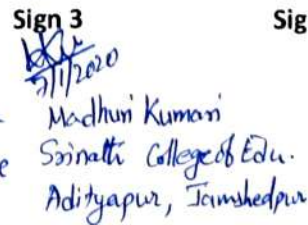 Sign 3 Sig
7/1/2020
Madhuri Kumari
Srinath College of Edu.
e
Adityapur, Jamshedpur